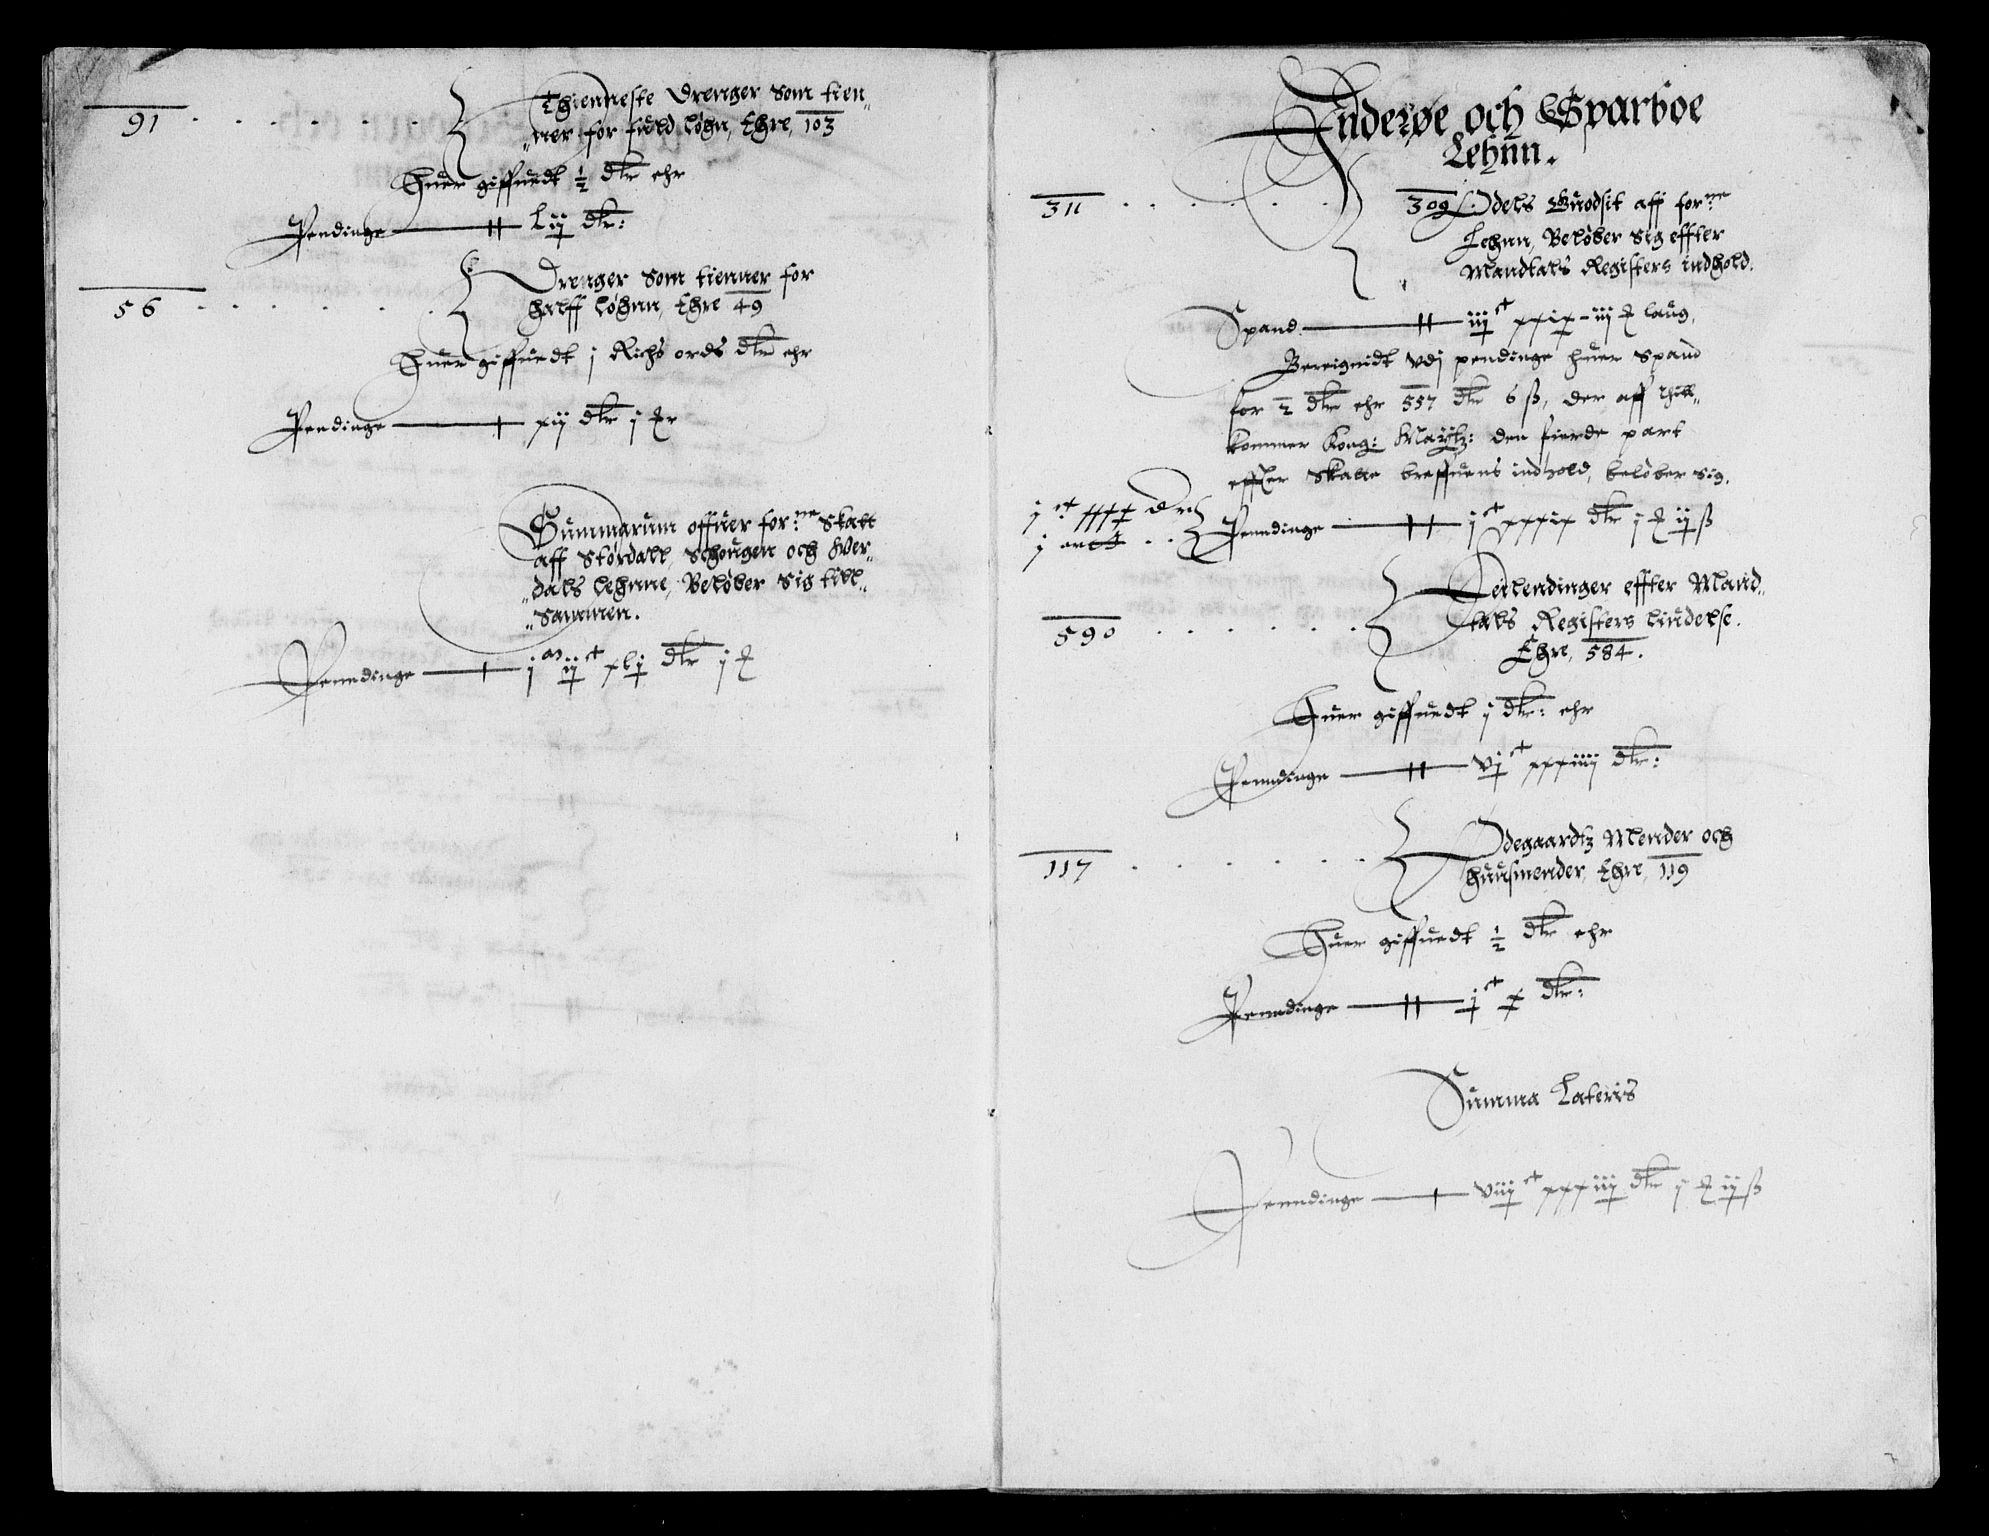 91 . . . . . . . Thienneste Drenger Som tien„
„ner for fuld løhn, Ehre, 103
Huer giffuedt ½ dlr ehr
Pendinge Lij dlr:
56 . . . . . . . Drenger Som tienner for
halff løhnn, Ehre 49
Huer giffuedt j Richs ords dlr ehr
Pendinge xij dlr j
Summarum offuer for:ne Skatt
aff Stördall, Schougen och Wer„
„dals lehnne, Beløber Sig till„
„Sammen.
Penndinge j m ij ct xlj dlr j
Inderøe och Sparboe
Lehnn.
311 . . . . . . . 309 Odels Guodsit aff for:ne
Lehnn, Beløber Sig effter
Mandtals Registers indhold.
Spand iij ct xxix - iij laug,
Bereignidt vdj pendinge huer Spand
for ½ dlr ehr 557 dlr 6 ß, der aff thill„
kommer Kong: Maytz: den fierde part
effter Skatte breffuens indhold, beløber sig,
Penndinge j ct xxxix dlr j ij ß
590 . . . . . . . Leilendinger effter Mand„
tals Registers liudelse.
Ehre, 584.
Huer giffuedt j dlr: ehr
Penndinge vj ct xxxiiij dlr:
117 . . . . . . . Ødegaardtz Mender och
huusmender, Ehre, 119
Huer giffuedt ½ dlr ehr
Penndinge j ct x dlr:
Summa Lateris
Penndinge viij ct xxxiij dlr j ij ß